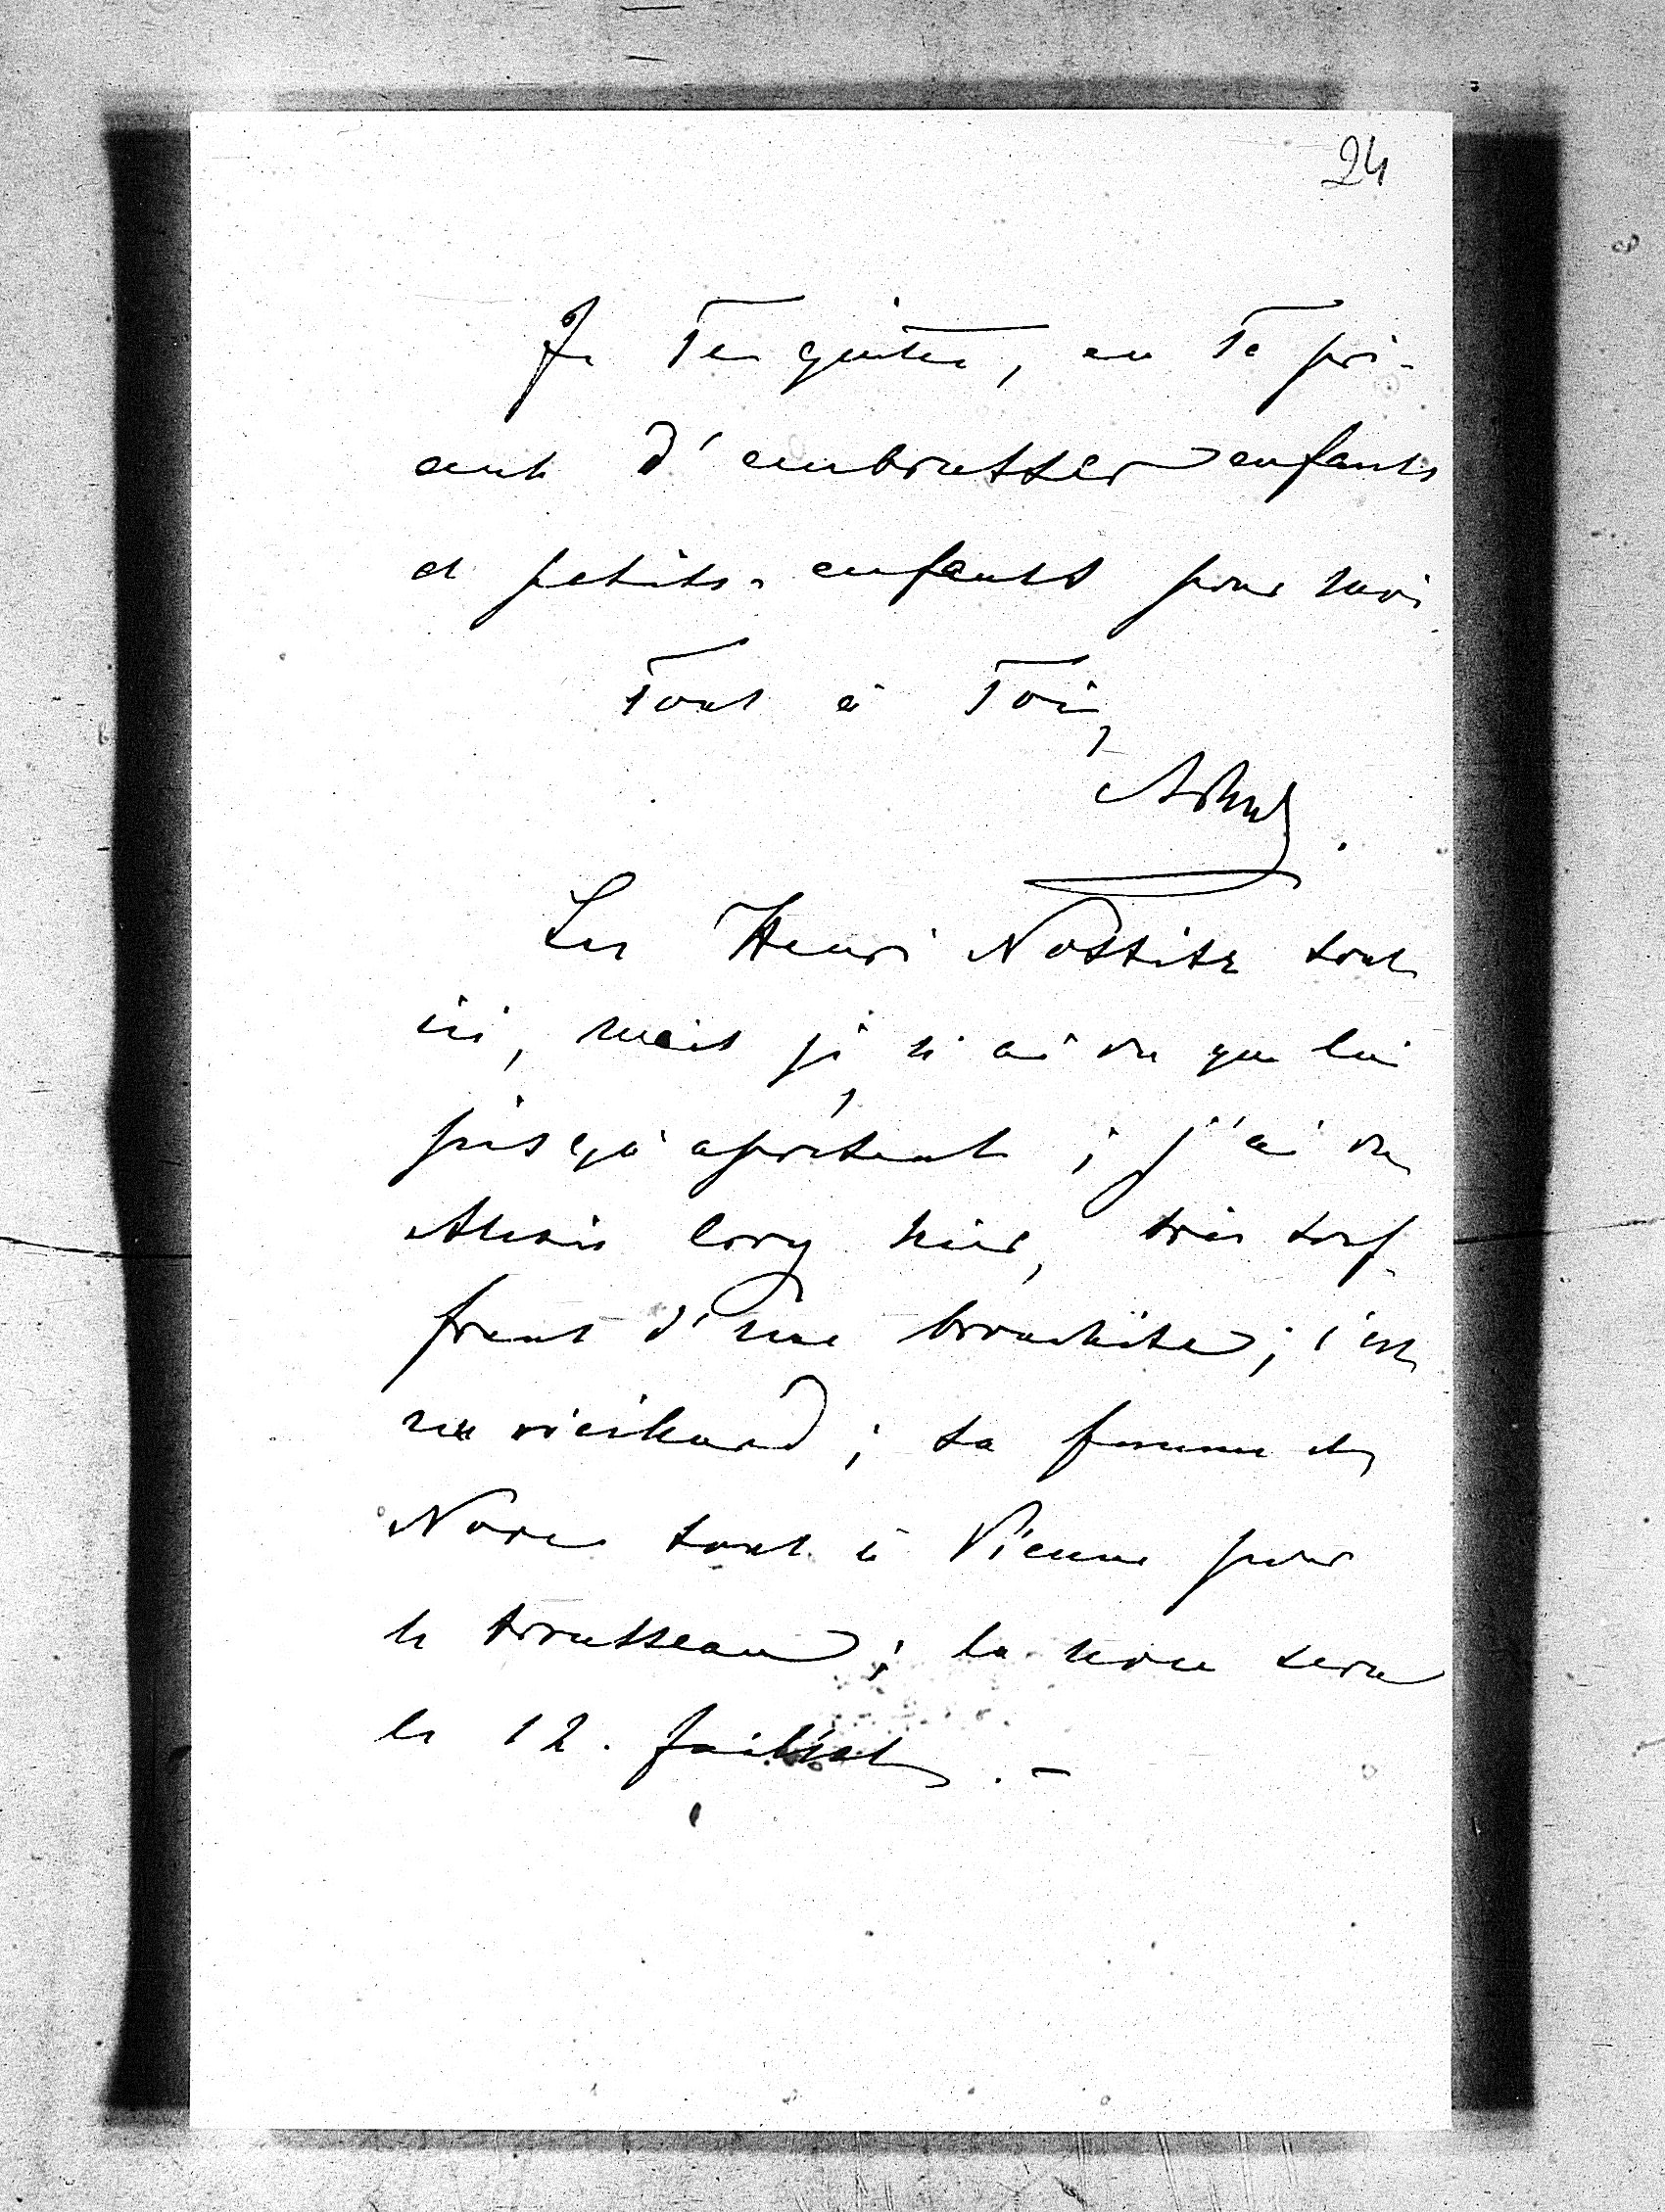 24
Je Te quitte, en Te pri-
ant d'embrasser enfants
et petits-enfants pour moi
Tout à Toi,
Les Henri Nostitz sont
ici, mais je n'ai vu que lui
jusqu'à présent ; j'ai vu
hier, très souf-
frant d'une bronchite ; c'est
un vieillard ; sa femme et
Nora sont à Vienne pour
le trousseau ; la noce sera
le 12. Juillet. -